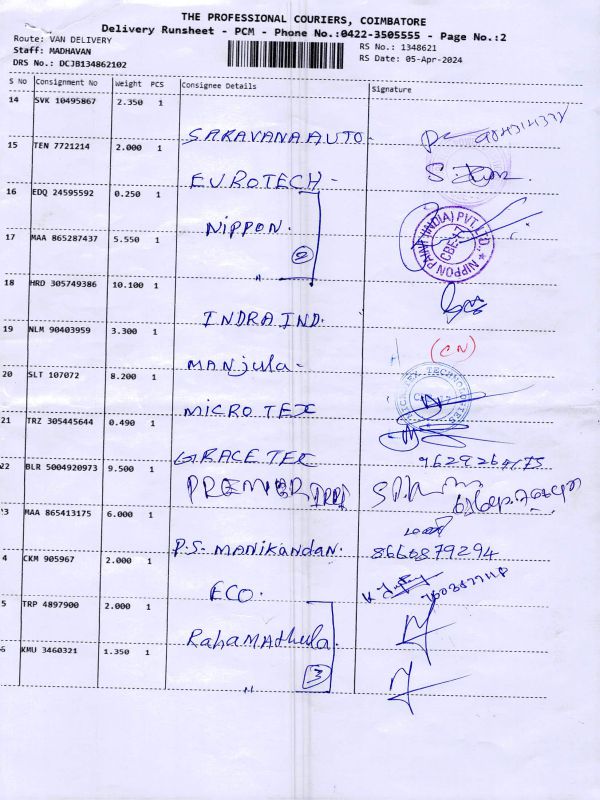 THE PROFESSIONAL COURIERS, COIMBATORE
Delivery Runsheet - PCM - Phone No.:0422-3505555 - Page No.:2
Route: VAN DELIVERY
Staff: MADHAVAN
DRS No.: DCJB134862102
RS No.: 1348621
RS Date: 05-Apr-2024
S No Consignment No Weight PCS Consignee Details Signature
14 SVK 10495867 2.350 1
SARAVANA AUTO
15 TEN 7721214 2.000 1
EUROTECH -
16 EDQ 24595592 0.250 1
NIPPON.
17 MAA 865287437 5.550 1
2
NIPPON PAINT (INDIA) PVT. LTD.
CBE
18 HRD 305749386 10.100 1
INDRA IND.
19 NLM 90403959 3.300 1
(CN)
MANjula -
20 SLT 107072 8.200 1
MICRO TEX
TECHNOLOGIES
21 TRZ 305445644 0.490 1
GRACE TEC
22 BLR 5004920973 9.500 1
PREMIER
3 MAA 865413175 6.000 1
P.S. MANIKANDAN. 8660879294
4 CKM 905967 2.000 1
ECO.
5 TRP 4897900 2.000 1
RahaMAthula.
6 KMU 3460321 1.350 1
" 3